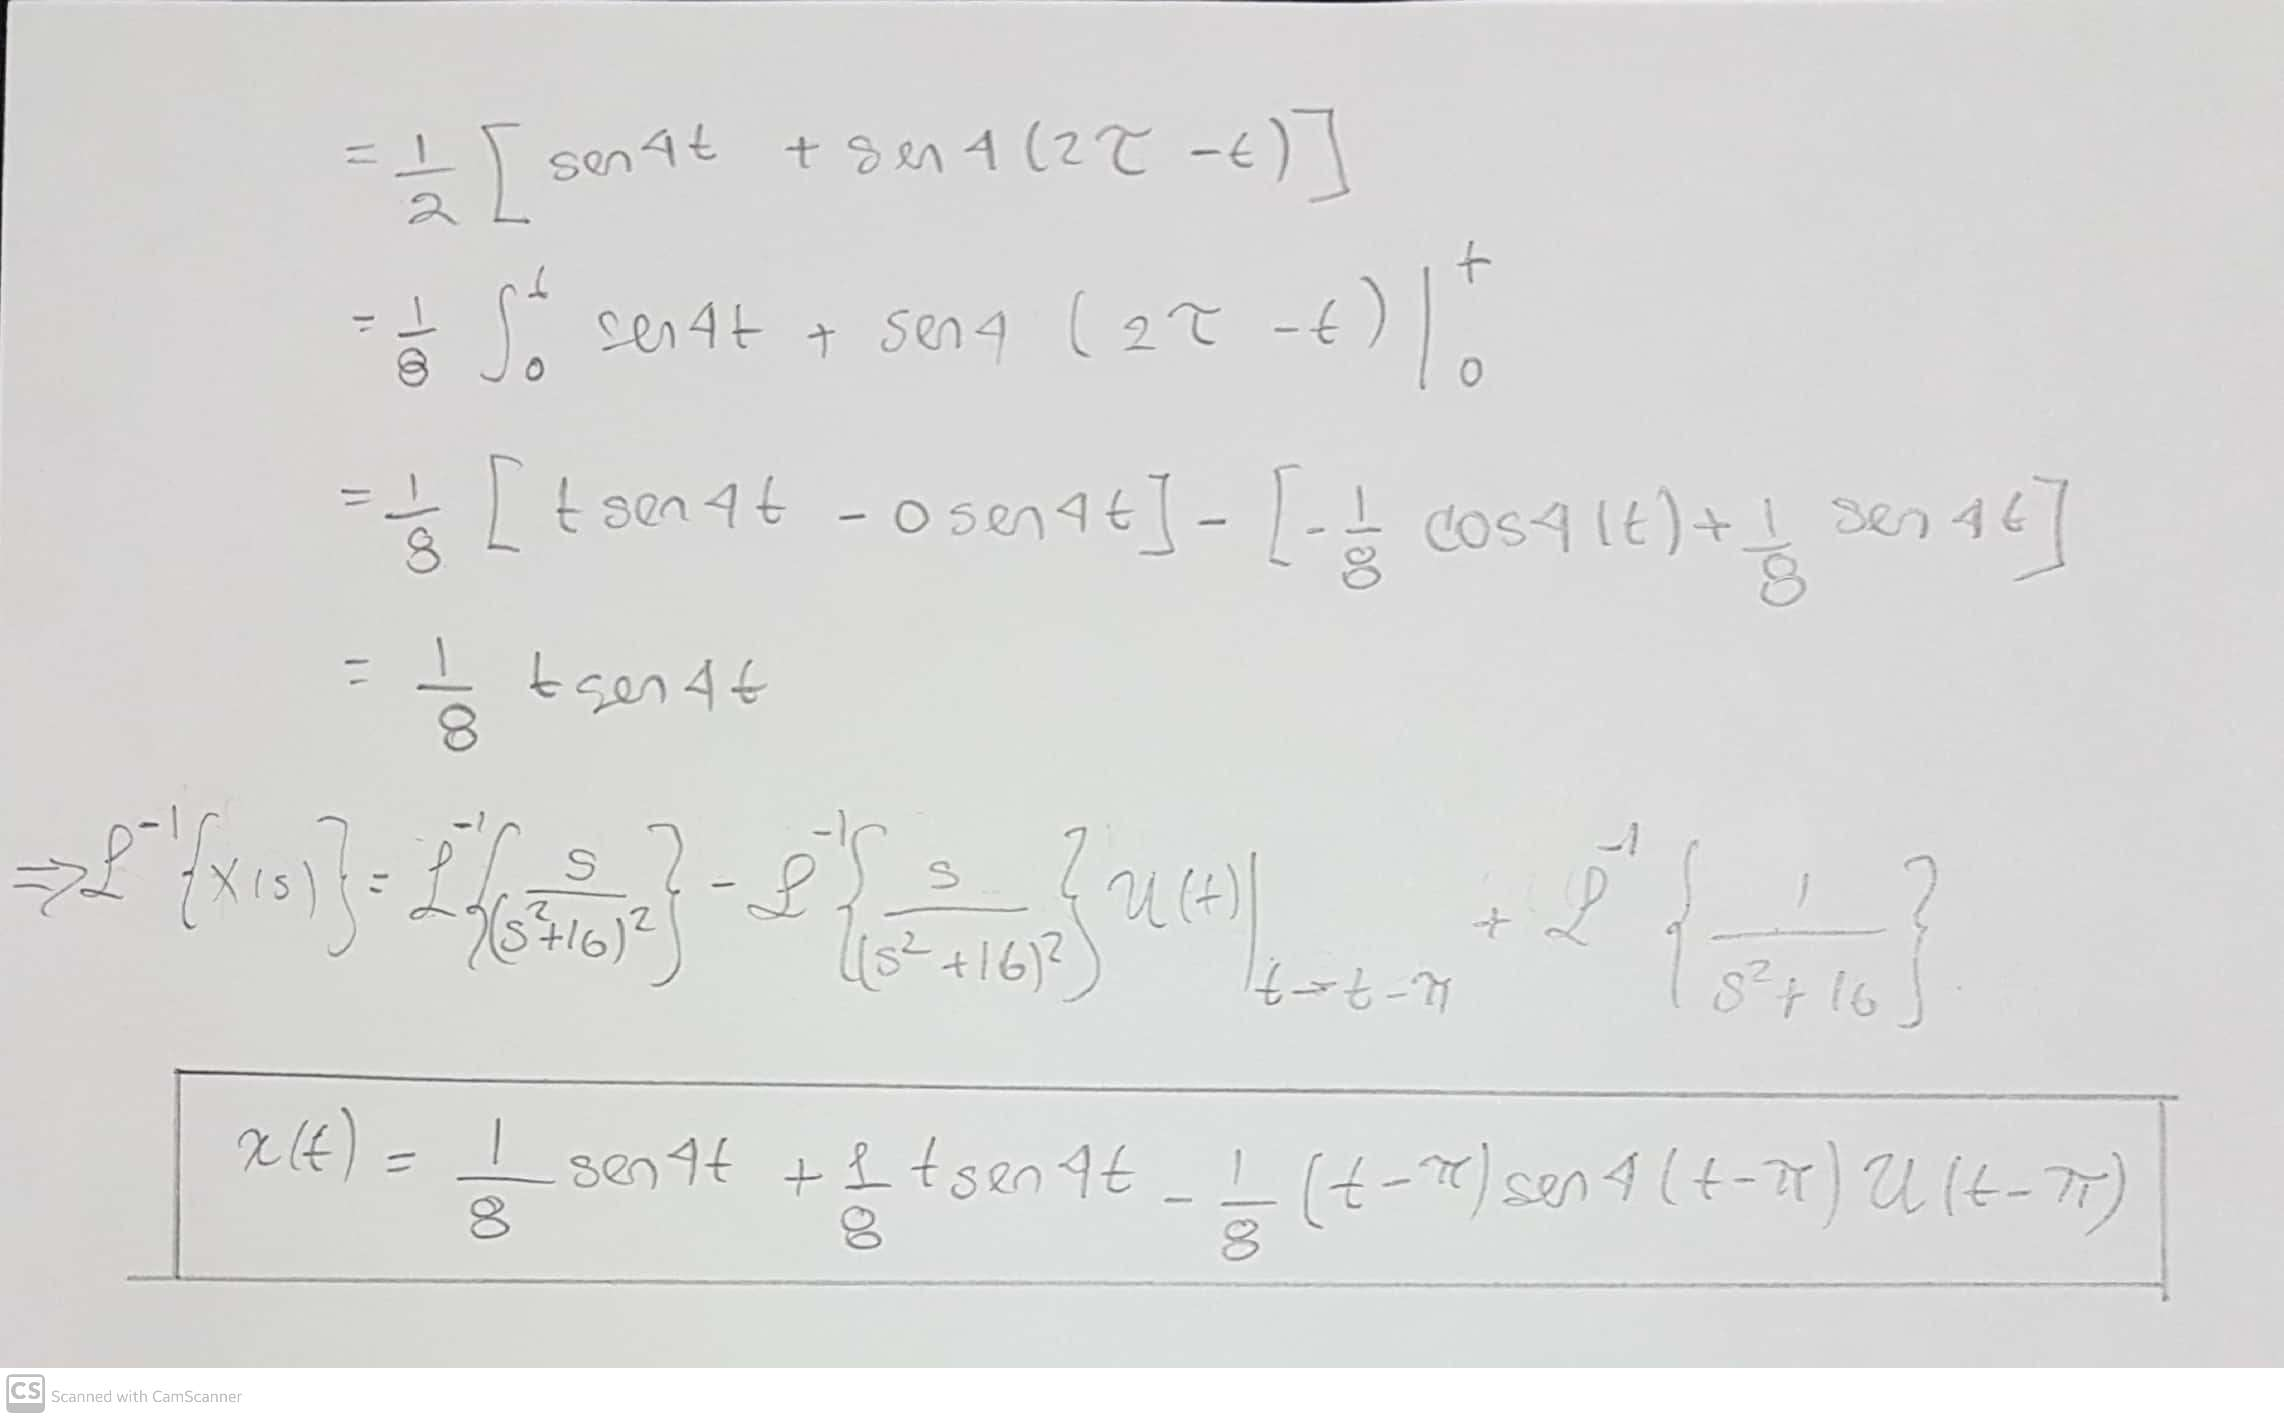 = 1/2 [ sen 4t + sen 4 (2τ - t) ]
= 1/8 ∫₀ᵗ sen 4t + sen 4 (2τ - t) |₀ᵗ
= 1/8 [ t sen 4t - 0 sen 4t ] - [ - 1/8 cos 4 (t) + 1/8 sen 4t ]
= 1/8 t sen 4t
⇒ ℒ⁻¹{X(s)} = ℒ⁻¹{ s/(s²+16)² } - ℒ⁻¹{ s/(s²+16)² } U(t)| t→t-π + ℒ⁻¹{ 1/(s²+16) }
x(t) = 1/8 sen 4t + 1/8 t sen 4t - 1/8 (t-π) sen 4 (t-π) U(t-π)
CS Scanned with CamScanner